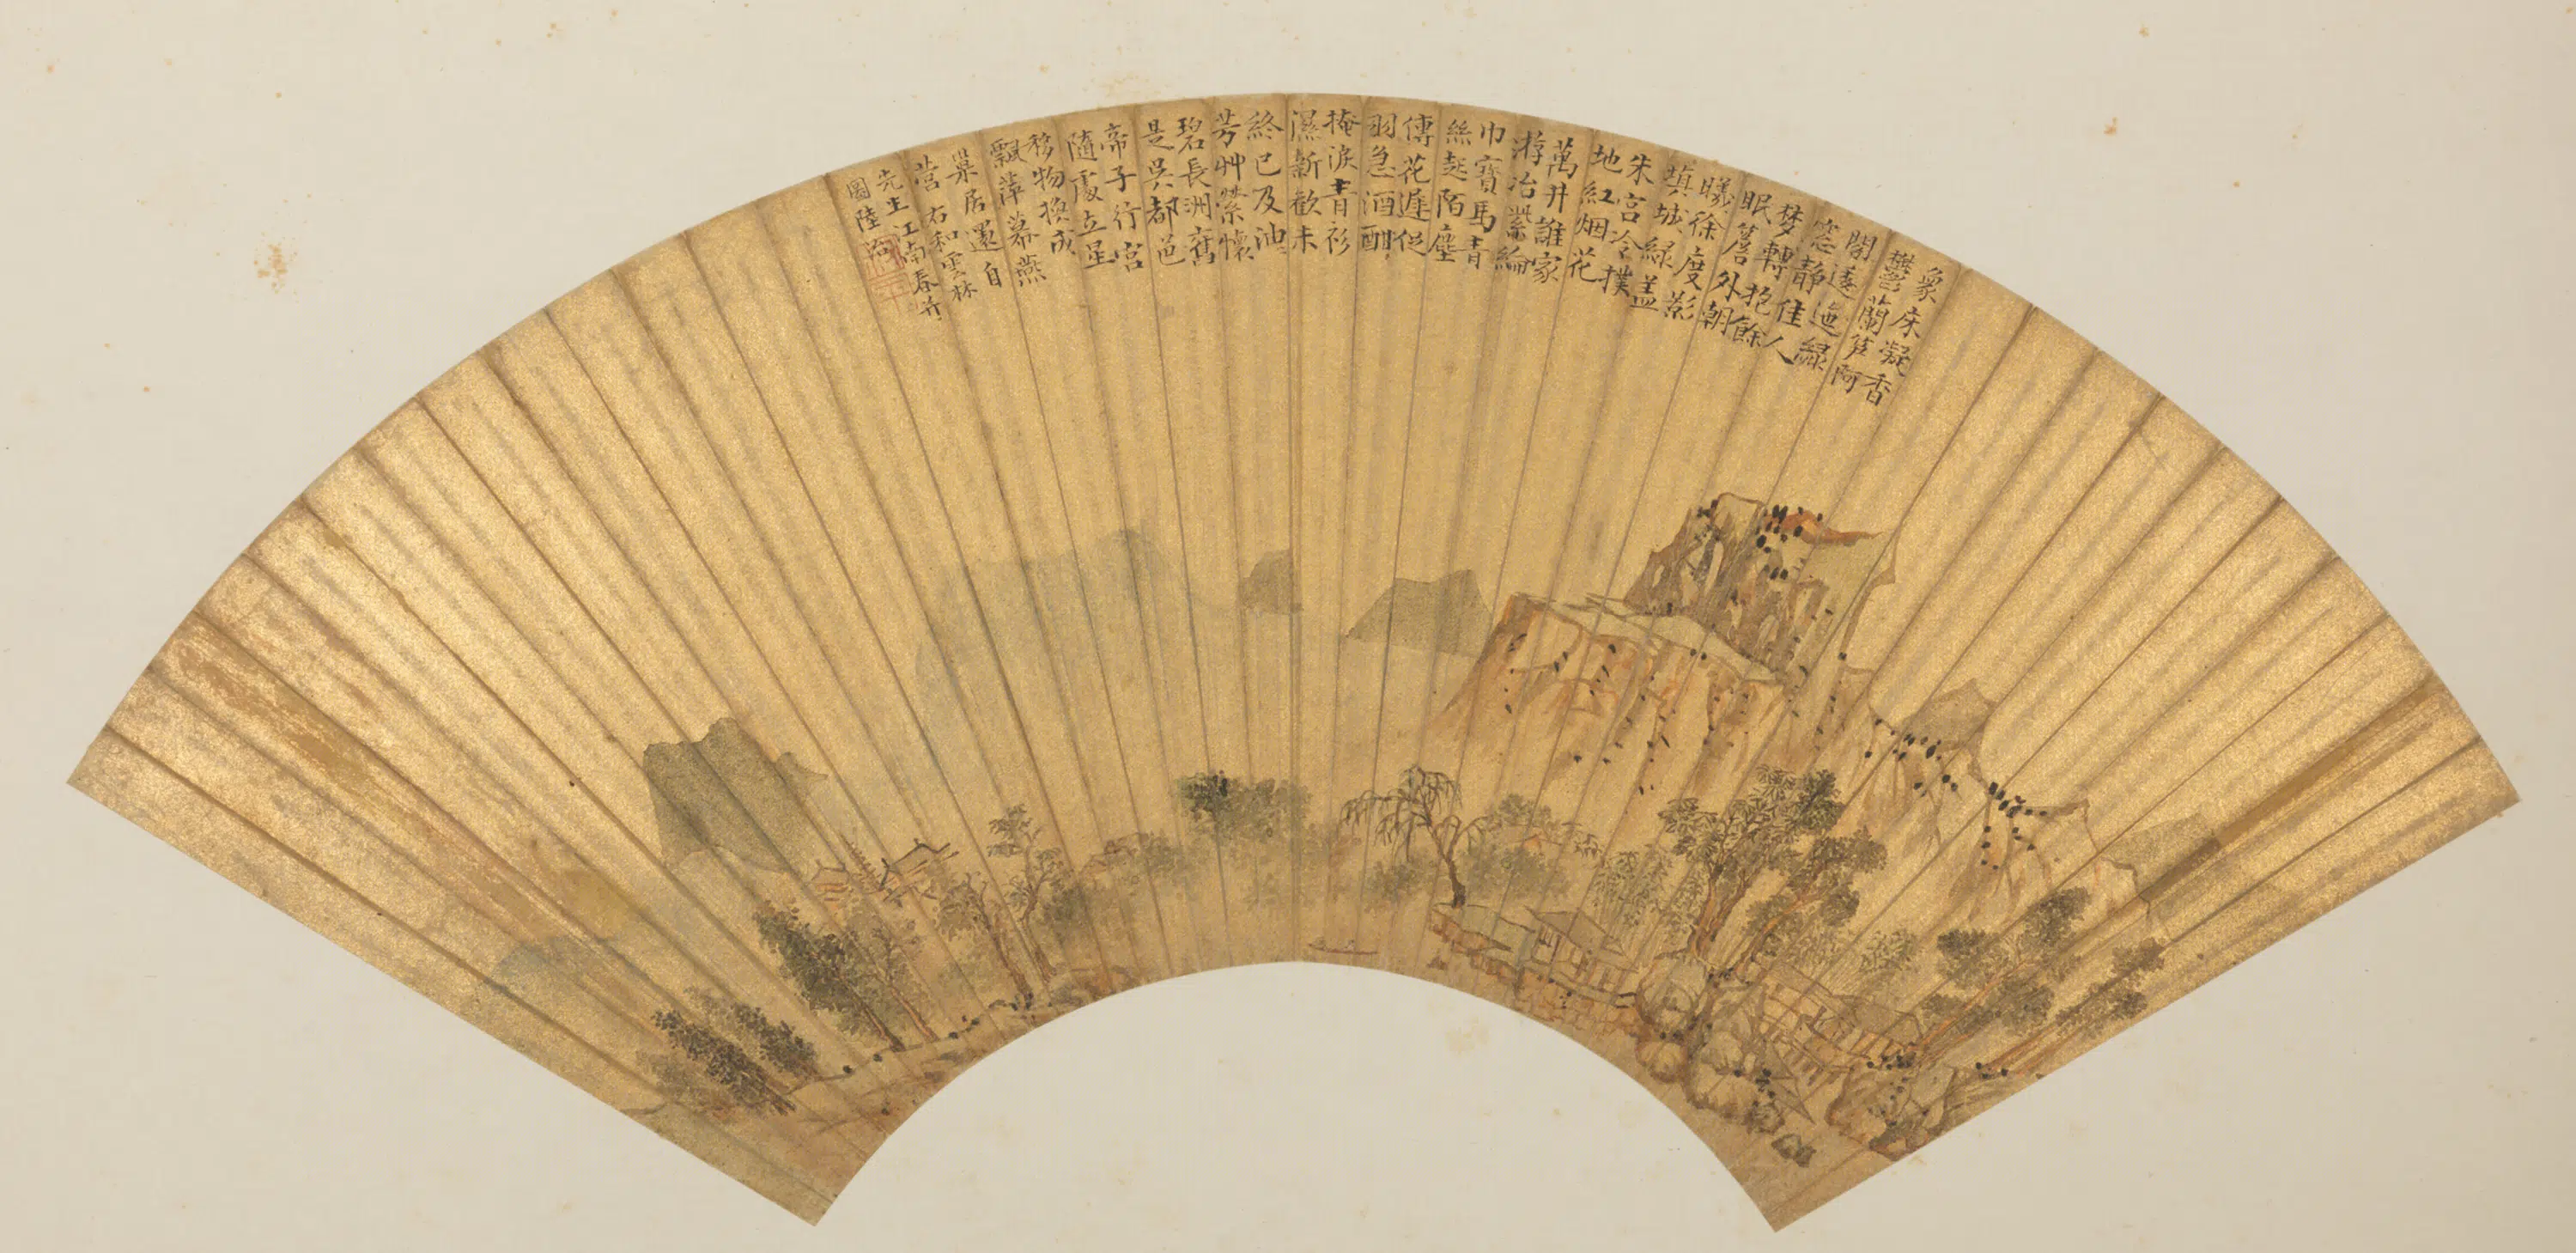 象床凝香
鬱蘭笋阿
閣逶迤緑
窓靜佳人
梦轉抱餘
眠簷外朝
曦徐度影
填城緑盖
朱宮冷撲
地紅烟花
萬井誰家
游冶紫綸
巾寳馬青
絲起陌塵
傳花遲促
羽急酒酣
掩淚青衫
濕新歡未
終已及池
芳艸縈懷
碧長洲舊
是吳都邑
帝子行宮
隨處立星
移物換成
飄萍幕燕
巢居還自
營 右和雲林
先生江南春并
圖陸治